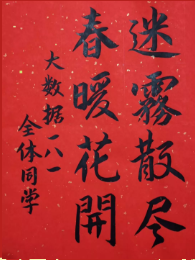 迷霧散尽
春暖花開
大数据一八一
全体同学